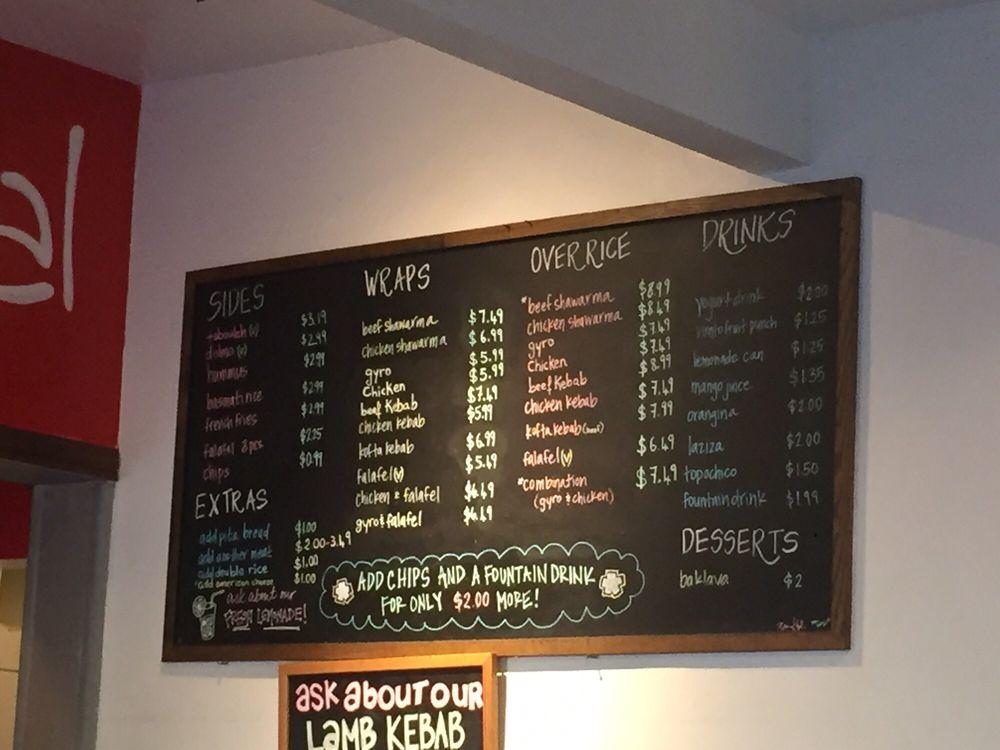 al
SIDES
tabouleh (v) $3.19
dolma (v) $2.99
hummus $2.99
basmati rice $2.99
french fries $2.99
falafel 3pcs $2.25
chips $0.99
EXTRAS
add pita bread $1.00
add another meat $2.00-3.49
add double rice $1.00
*add american cheese $1.00
ask about our
FRESH LEMONADE!
WRAPS
beef shawarma $7.49
chicken shawarma $6.99
gyro $5.99
Chicken $5.99
beef Kebab $7.49
chicken kebab $5.99
kofta kebab $6.99
falafel (v) $5.49
chicken & falafel $6.49
gyro & falafel $6.49
OVER RICE
*beef shawarma $8.99
chicken shawarma $8.49
gyro $7.49
Chicken $7.49
beef Kebab $8.99
chicken kebab $7.49
kofta kebab (beef) $7.99
falafel (v) $6.49
*combination $7.49
(gyro & chicken)
DRINKS
yogurt drink $2.00
vimto fruit punch $1.25
lemonade can $1.25
mango juice $1.35
orangina $2.00
laziza $2.00
topochico $1.50
fountain drink $1.99
DESSERTS
baklava $2
ADD CHIPS AND A FOUNTAIN DRINK
FOR ONLY $2.00 MORE!
ask about our
LAMB KEBAB